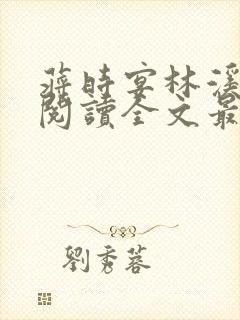 蔣時宴林溪
閱讀全文最
劉秀蓉